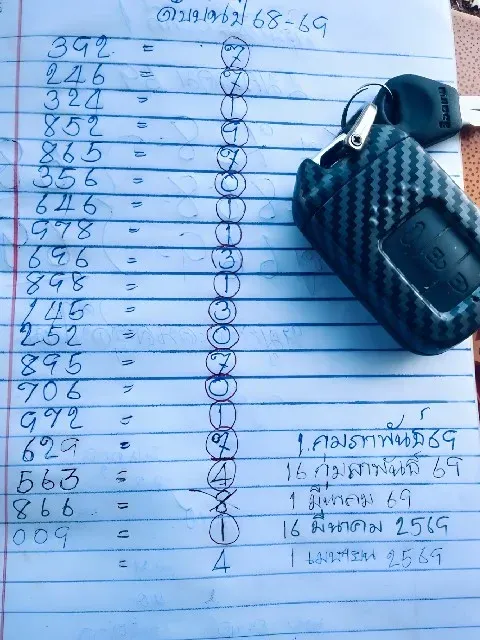 ดับบนปี 68-69
392 = 7
246 = 7
324 = 1
852 = 9
865 = 7
356 = 0
646 = 1
978 = 1
696 = 3
898 = 1
145 = 3
252 = 0
895 = 7
706 = 0
972 = 1
629 = 7 1 กุมภาพันธ์ 69
563 = 4 16 กุมภาพันธ์ 69
866 = 8 1 มีนาคม 69
009 = 1 16 มีนาคม 2569
= 4 1 เมษายน 2569